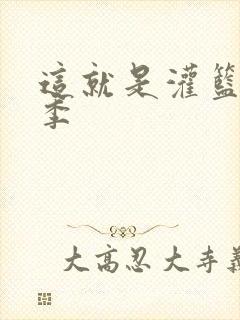 這就是灌籃
季
大高忍大寺